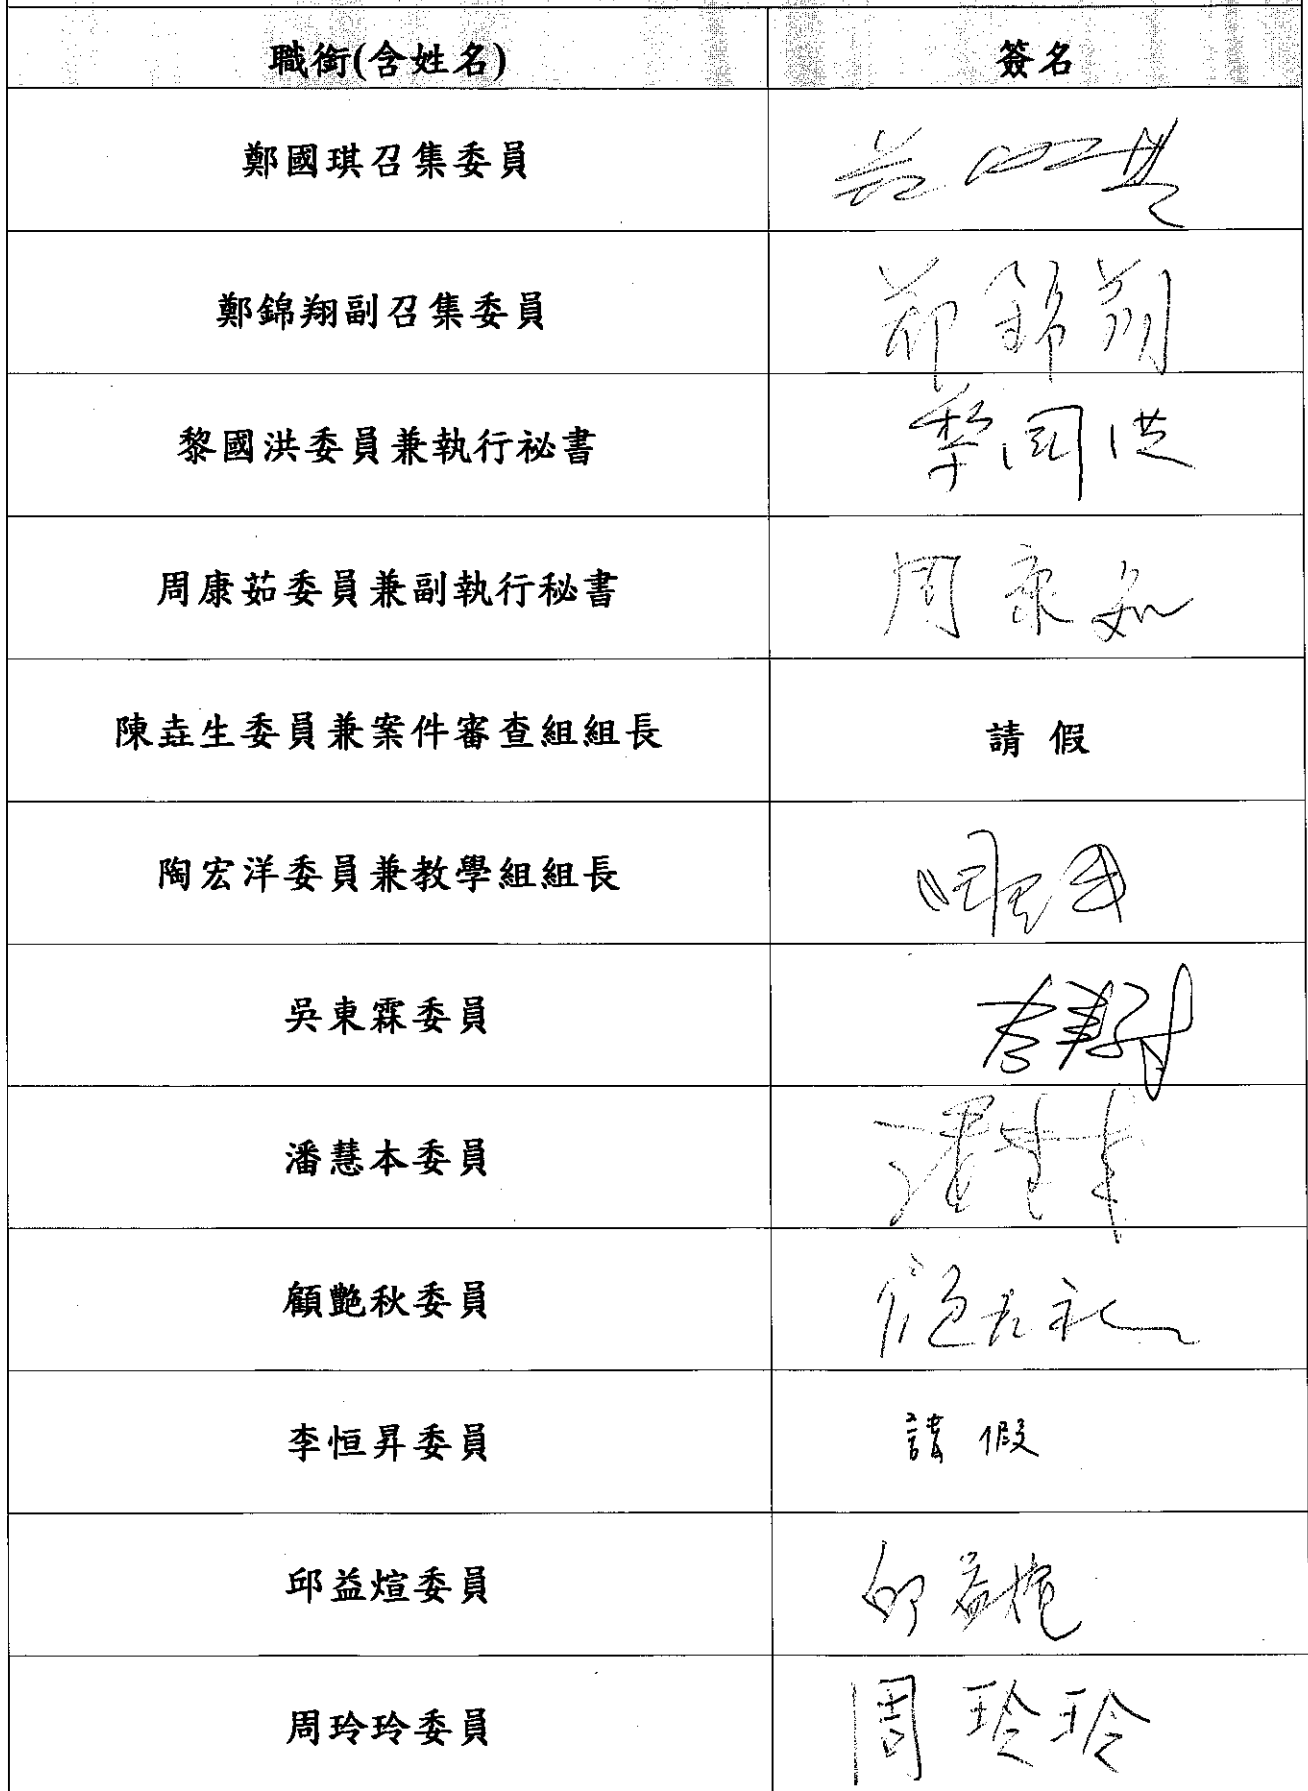 職銜(含姓名) 簽名
鄭國琪召集委員
鄭錦翔副召集委員 鄭錦翔
黎國洪委員兼執行祕書 黎國洪
周康茹委員兼副執行秘書 周康茹
陳垚生委員兼案件審查組組長 請假
陶宏洋委員兼教學組組長
吳東霖委員
潘慧本委員 潘慧本
顧艷秋委員
李恒昇委員 請假
邱益煊委員 邱益煊
周玲玲委員 周玲玲